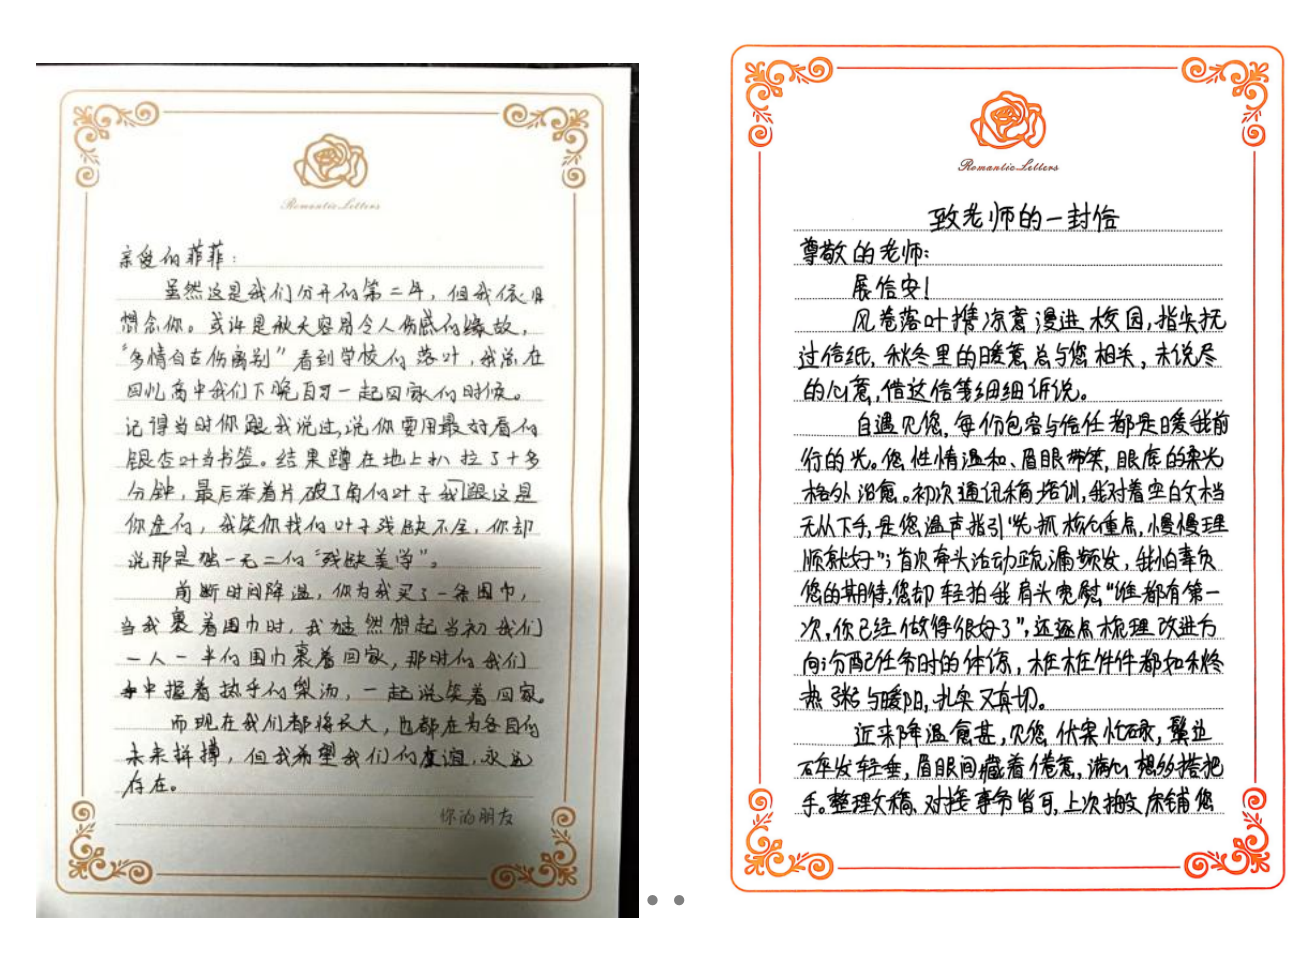 Romantic Letters
亲爱的菲菲：
虽然这是我们分开的第二年，但我依旧
想念你。或许是秋天容易令人伤感的缘故，
“多情自古伤离别”看到学校的落叶，我总在
回忆高中我们下晚自习一起回家的时候。
记得当时你跟我说过，说你要用最好看的
银杏叶当书签。结果蹲在地上扒拉了十多
分钟，最后举着片破了角的叶子我跟这是
你造的，我笑你找的叶子残缺不全，你却
说那是独一无二的“残缺美学”。
前断时间降温，你为我买了一条围巾，
当我裹着围巾时，我总然想起当初我们
一人一半的围巾裹着回家，那时的我们
中握着热乎的梨汤，一起说笑着回家。
而现在我们都将长大，也都在为各自的
未来拼搏，但我希望我们的友谊，永远
存在。
你的朋友
Romantic Letters
致老师的一封信
尊敬的老师：
展信安！
风卷落叶携凉意漫进校园，指尖抚
过信纸，秋冬里的暖意总与您相关，未说尽
的心意，借这信笺细细诉说。
自遇见您，每份包容与信任都是暖我前
行的光。您性情温和、眉眼带笑，眼底的柔光
格外治愈。初次通讯稿培训，我对着空白文档
无从下手，是您温声指引“先抓核心重点，慢慢理
顺就好”；首次牵头活动疏漏频发，我怕辜负
您的期待，您却轻拍我肩头宽慰“谁都有第一
次，你已经做得很好了”，还逐点梳理改进方
向；分配任务时的体谅，桩桩件件都如秋冬
热粥与暖阳，扎实又真切。
近来降温愈甚，见您伏案忙碌，鬓边
碎发轻垂，眉眼间藏着倦意，满心想多搭把
手。整理文稿、对接事务皆可，上次抽投床铺您